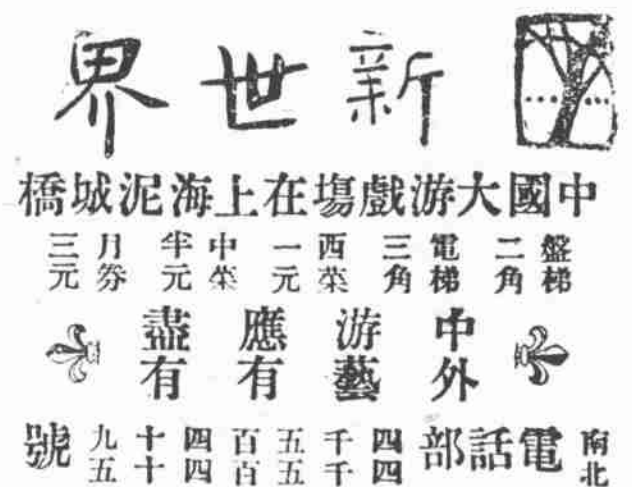 新世界
中國大游戲塲在上海泥城橋
盤梯二角 電梯三角 西菜一元 中菜半元 月券三元
中外游藝應有盡有
南北電話部 四千五百四十九 四千五百四十五 號